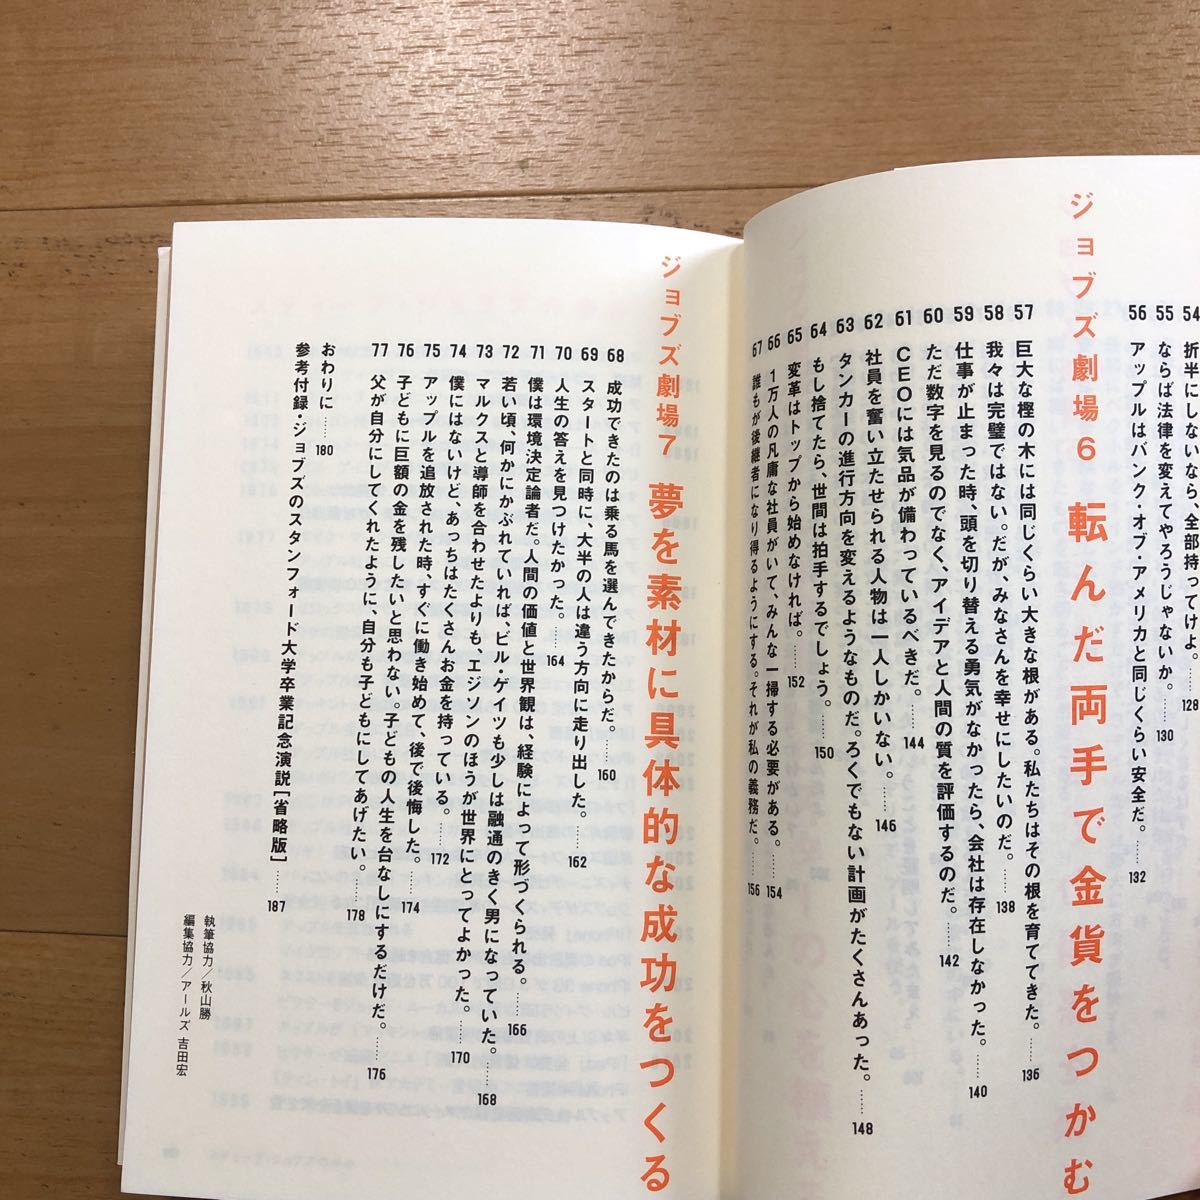 54 折半にしないなら、全部持ってけよ。……128
55 ならば法律を変えてやろうじゃないか。……130
56 アップルはバンク・オブ・アメリカと同じくらい安全だ。……132
ジョブズ劇場6 転んだ両手で金貨をつかむ
57 巨大な樫の木には同じくらい大きな根がある。私たちはその根を育ててきた。……136
58 我々は完璧ではない。だが、みなさんを幸せにしたいのだ。……138
59 仕事が止まった時、頭を切り替える勇気がなかったら、会社は存在しなかった。……140
60 ただ数字を見るのでなく、アイデアと人間の質を評価するのだ。……142
61 CEOには気品が備わっているべきだ。……144
62 社員を奮い立たせられる人物は一人しかいない。……146
63 タンカーの進行方向を変えるようなものだ。ろくでもない計画がたくさんあった。……148
64 もし捨てたら、世間は拍手するでしょう。……150
65 変革はトップから始めなければ。……152
66 1万人の凡庸な社員がいて、みんな一掃する必要がある。……154
67 誰もが後継者になり得るようにする。それが私の義務だ。……156
ジョブズ劇場7 夢を素材に具体的な成功をつくる
68 成功できたのは乗る馬を選んできたからだ。……160
69 スタートと同時に、大半の人は違う方向に走り出した。……162
70 人生の答えを見つけたかった。……164
71 僕は環境決定論者だ。人間の価値と世界観は、経験によって形づけられる。……166
72 若い頃、何かにかぶれていれば、ビル・ゲイツも少しは融通のきく男になっていた。……168
73 マルクスと導師を合わせたよりも、エジソンのほうが世界にとってよかった。……170
74 僕にはないけど、あっちはたくさんお金を持っている。……172
75 アップルを追放された時、すぐに働き始めて、後で後悔した。……174
76 子どもに巨額の金を残したいと思わない。子どもの人生を台なしにするだけだ。……176
77 父が自分にしてくれたように、自分も子どもにしてあげたい。……178
おわりに……180
参考付録・ジョブズのスタンフォード大学卒業記念演説[省略版]……187
執筆協力／秋山勝
編集協力／アールズ 吉田宏